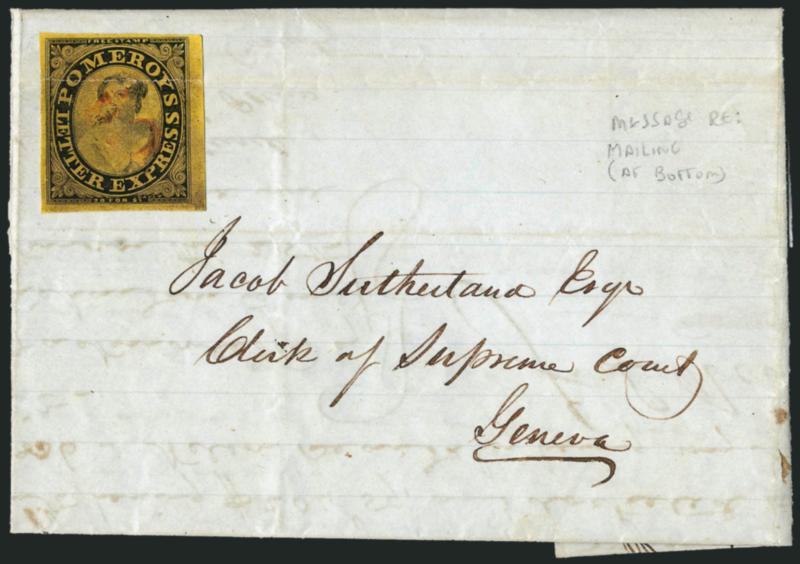 FREE STAMP
POMEROY'S
LETTER EXPRESS
20 FOR $1.
MESSAGE RE:
MAILING
(AT BOTTOM)
Jacob Sutherland Esqr
Clerk of Supreme Court
Geneva